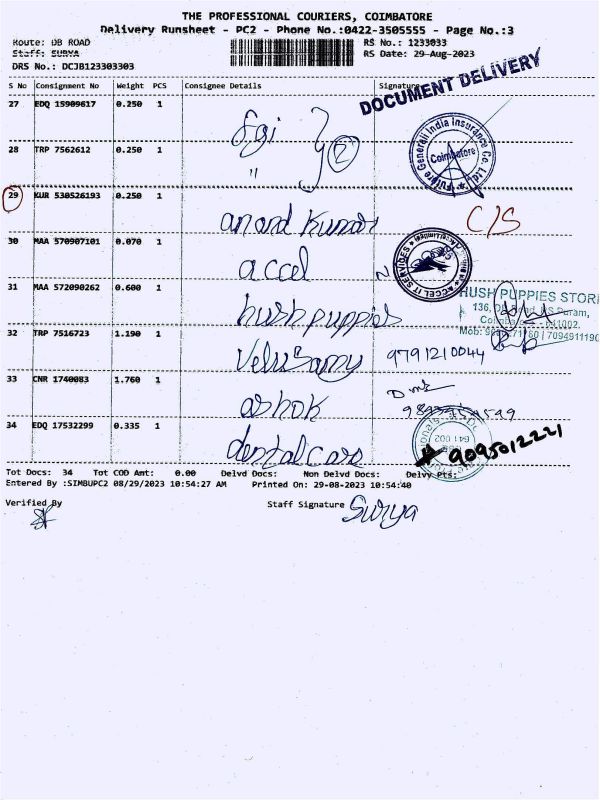 THE PROFESSIONAL COURIERS, COIMBATORE
Delivery Runsheet - PC2 - Phone No.:0422-3505555 - Page No.:3
Route: DB ROAD RS No.: 1233033
Staff: SURYA RS Date: 29-Aug-2023
DRS No.: DCJB123303303
DOCUMENT DELIVERY
S No Consignment No Weight PCS Consignee Details Signature
27 EDQ 15909617 0.250 1 fgi } 2
Future Generali India Insurance Co. Ltd. Coimbatore
28 TRP 7562612 0.250 1 "
29 KUR 530526193 0.250 1 anand kumar C/S
30 MAA 570907101 0.070 1 accel
ACCEL IT SERVICES
31 MAA 572090262 0.600 1 hush puppies
HUSH PUPPIES STORE
136, Puram,
641002.
Mob: 7094911190
32 TRP 7516723 1.190 1 Velusamy 9791210044
33 CNR 1740083 1.760 1 ashok
34 EDQ 17532299 0.335 1 dental care 9095012221
641 002
Tot Docs: 34 Tot COD Amt: 0.00 Delvd Docs: Non Delvd Docs: Delvy Pts:
Entered By :SIMBUPC2 08/29/2023 10:54:27 AM Printed On: 29-08-2023 10:54:40
Verified By Staff Signature Surya